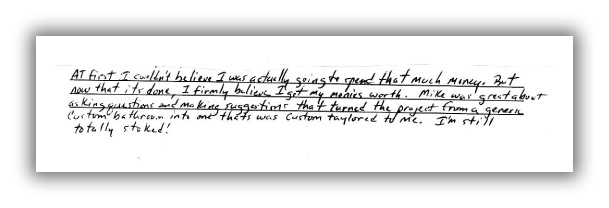 AT first I couldn't believe I was actually going to spend that much money. But
now that its done, I firmly believe I got my monies worth. Mike was great about
asking questions and making suggestions that turned the project from a generic
Custom bathroom into one thats was Custom taylored to me. I'm still
totally stoked!